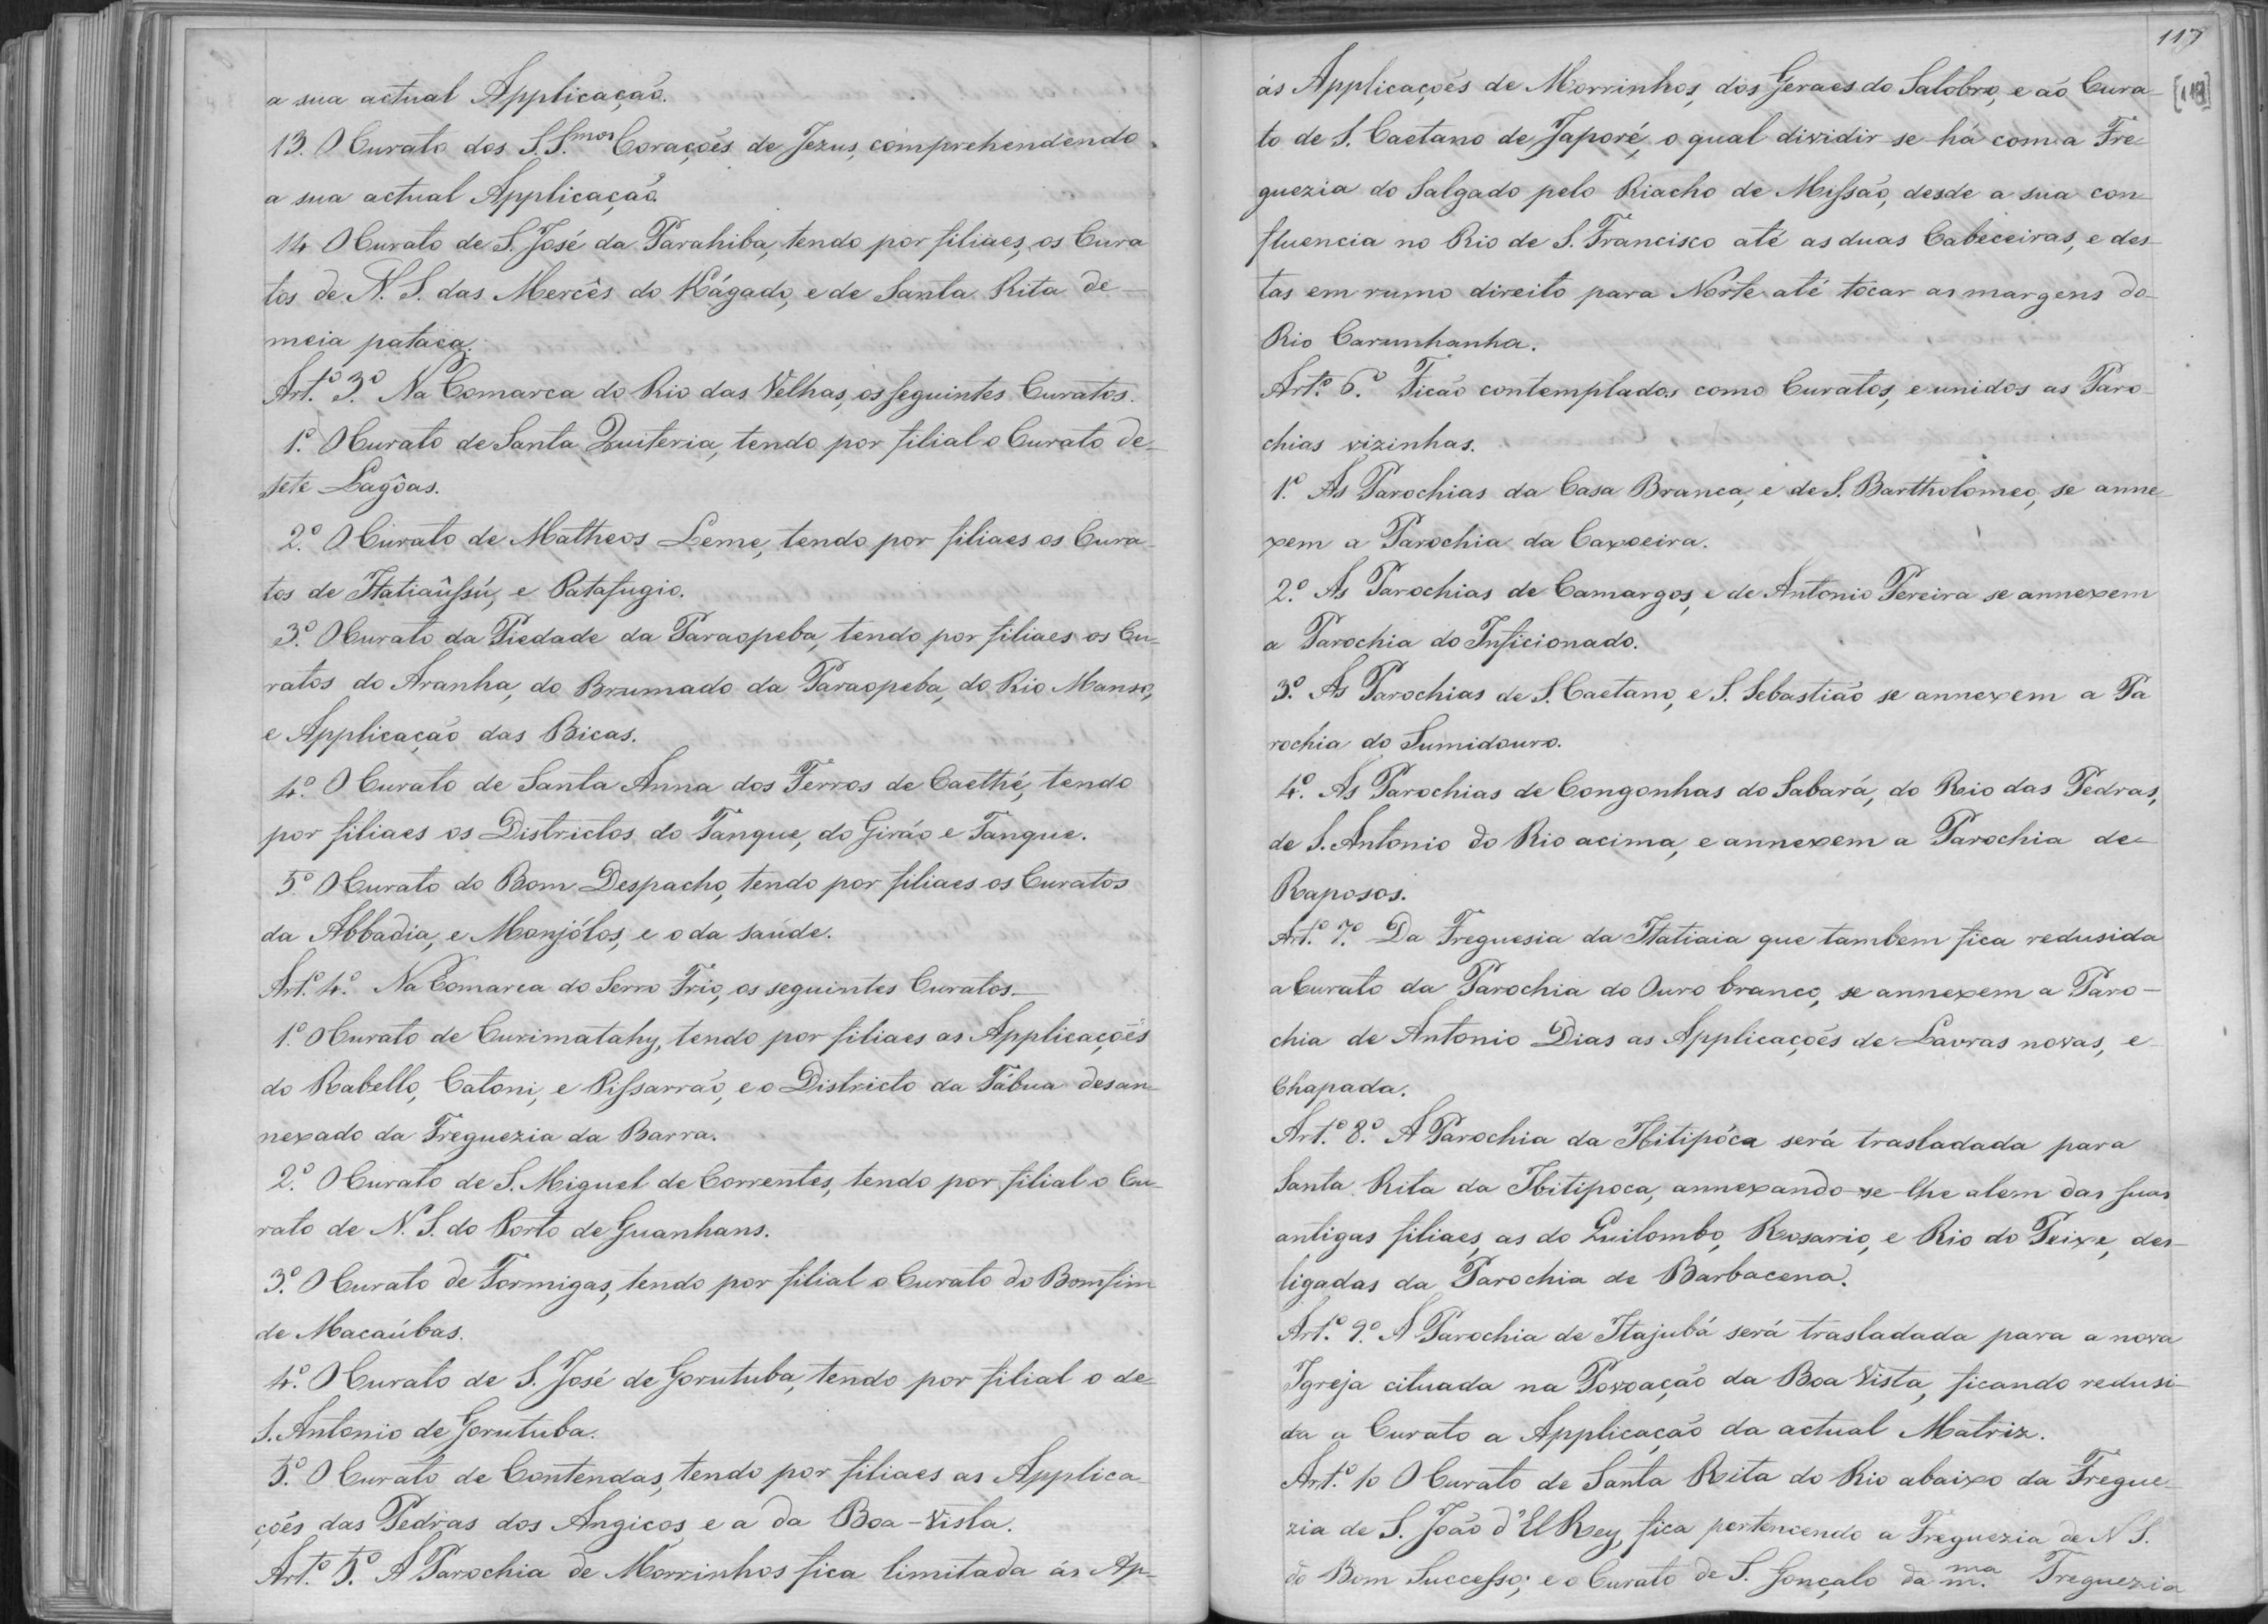 a sua actual Applicação.
13. O Curato dos S.S.mos Corações de Jezus, comprehendendo
a sua actual Applicação.
14 O Curato de S. José da Parahiba, tendo por filiaes, os Cura
tos de N. S. das Mercês do Kágado, e de Santa Rita de
meia pataca.
Art.º 3.º Na Comarca do Rio das Velhas, os seguintes Curatos.
1.º O Curato de Santa Quiteria, tendo por filial o Curato de
sete Lagôas.
2.º O Curato de Matheos Leme, tendo por filiaes os Cura
tos de Itatiaûssú, e Patafugio.
3.º O Curato da Piedade da Paraopeba, tendo por filiaes os Cu-
ratos do Aranha, do Brumado da Paraopeba, do Rio Manso,
e Applicação das Bicas.
4.º O Curato de Santa Anna dos Ferros de Caethé, tendo
por filiaes os Districtos do Tanque, do Giráo e Tanque.
5.º O Curato do Bom Despacho, tendo por filiaes os Curatos
da Abbadia, e Monjólos, e o da saúde.
Art.º 4.º Na Comarca do Serro Frio, os seguintes Curatos—
1.º O Curato de Curimatahy, tendo por filiaes as Applicações
do Rabello, Catoni, e Pissarrão, e o Districto da Tábua desan-
nexado da Freguezia da Barra.
2.º O Curato de S. Miguel de Correntes, tendo por filial o Cu-
rato de N. S. do Porto de Guanhans.
3.º O Curato de Formigas, tendo por filial o Curato do Bomfim
de Macaúbas.
4.º O Curato de S. José de Gorutuba, tendo por filial o de
S. Antonio de Gorutuba.
5.º O Curato de Contendas, tendo por filiaes as Applica
ções das Pedras dos Angicos, e a da Boa-Vista.
Art.º 5.º A Parochia de Morrinhos fica limitada ás Ap-
117
[118]
ás Applicações de Morrinhos, dos Geraes do Salobro, e ao Cura-
to de S. Caetano de Japoré, o qual dividir-se-há com a Fre-
guezia do Salgado pelo Riacho de Missão, desde a sua con
fluencia no Rio de S. Francisco até as duas Cabeceiras, e des-
tas em rumo direito para Norte até tocar as margens do
Rio Carunhanha.
Art.º 6.º Ficão contemplados como Curatos, e unidos as Paro
chias vizinhas.
1.º As Parochias da Casa Branca, e de S. Bartholomeo, se anne
xem a Parochia da Caxoeira.
2.º As Parochias de Camargos, e de Antonio Pereira se annexem
a Parochia do Inficionado.
3.º As Parochias de S. Caetano, e S. Sebastião se annexem a Pa
rochia do Sumidouro.
4.º As Parochias de Congonhas do Sabará, do Rio das Pedras,
de S. Antonio do Rio acima, e annexem a Parochia de
Raposos.
Art.º 7.º Da Freguesia da Itatiaia que tambem fica redusida
a Curato da Parochia do Ouro branco, se annexem a Paro-
chia de Antonio Dias as Applicações de Lavras novas, e
Chapada.
Art.º 8.º A Parochia da Ibitipóca será trasladada para
Santa Rita da Ibitipoca, annexando-se-lhe alem das suas
antigas filiaes, as do Quilombo, Rosario, e Rio do Peixe, des-
ligadas da Parochia de Barbacena.
Art.º 9.º A Parochia de Itajubá será trasladada para a nova
Igreja cituada na Povoação da Boa Vista, ficando redusi-
da a Curato a Applicação da actual Matriz.
Art.º 10 O Curato de Santa Rita do Rio abaixo da Fregue-
zia de S. João d'El Rey, fica pertencendo a Freguezia de N S.
do Bom Successo; e o Curato de S. Gonçalo da m.ma Freguezia